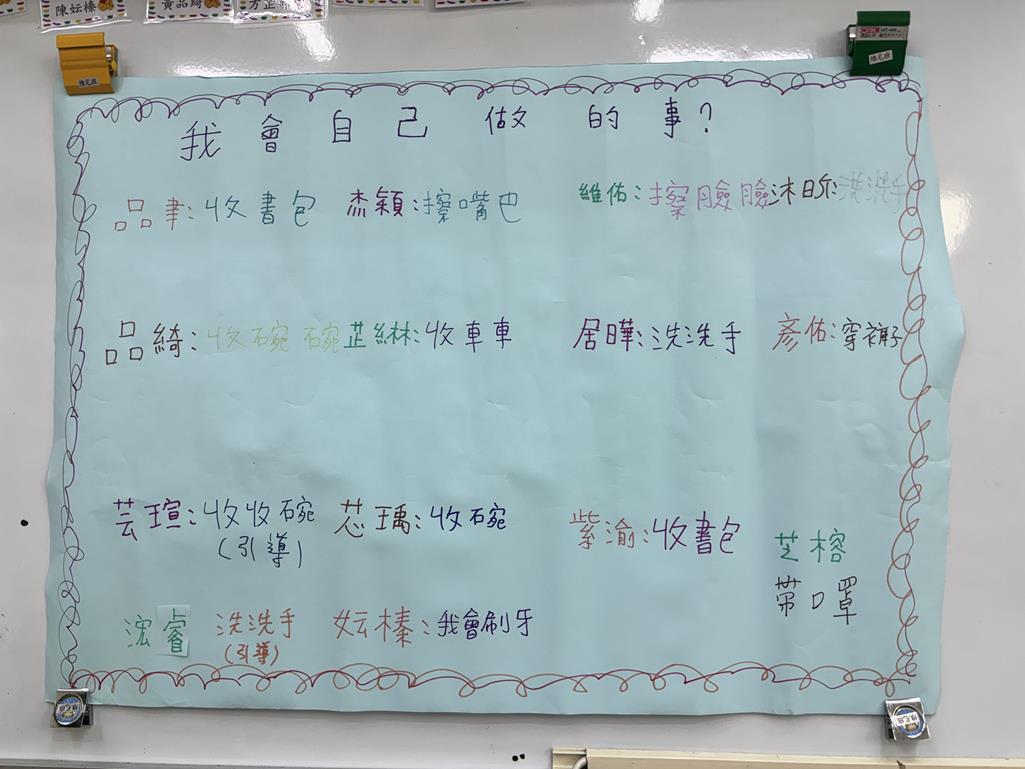 陳妘榛
黃品綺
維尼班
維尼班
我會自己做的事?
品聿:收書包 杰穎:擦嘴巴 維佑:擦臉臉 沐昕:洗洗手
品綺:收碗碗 芷綝:收車車 居曄:洗洗手 彥佑:穿褲子
芸瑄:收收碗 芯瑀:收碗 紫渝:收書包 芝榕
(引導) 帶口罩
浤睿 洗洗手 妘榛:我會刷牙
(引導)
維尼班
維尼班